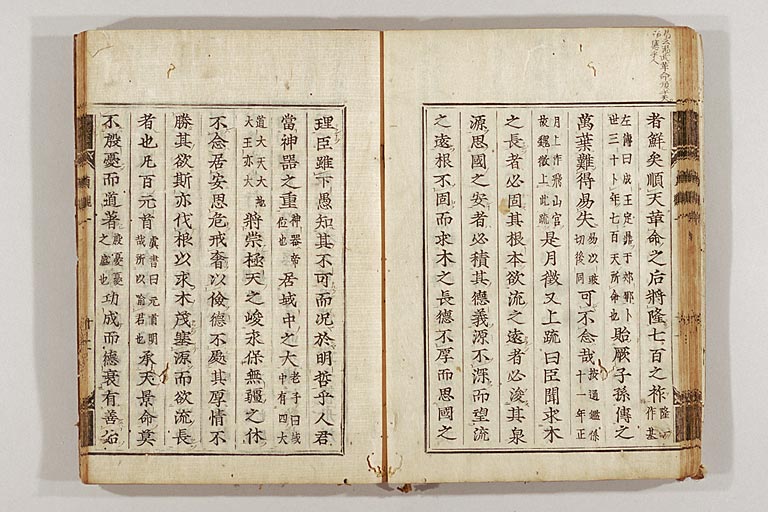 易云湯武革命順乎天
而應乎人
者鮮矣順天革命之后將隆七百之祚
左傳曰成王定鼎于郟鄏卜
世三十卜年七百天所命也
貽厥子孫傳之
萬葉難得易失
易以豉
切後同
可不念哉
按通鑑係
十一年正
月上作飛山宮
故魏徵上此疏
是月徵又上疏曰臣聞求木
之長者必固其根本欲流之遠者必浚其泉
源思國之安者必積其德義源不深而望流
之遠根不固而求木之長德不厚而思國之
理臣雖下愚知其不可而況於明哲乎人君
當神器之重
神器帝
位也
居域中之大
老子曰域
中有四大
道大天大地
大王亦大
將崇極天之峻永保無疆之休
不念居安思危戒奢以儉德不處其厚情不
勝其欲斯亦伐根以求木茂塞源而欲流長
者也凡百元首
虞書曰元首明
哉所以諭君也
承天景命莫
不殷憂而道著
殷憂憂
之盛也
功成而德衰有善始